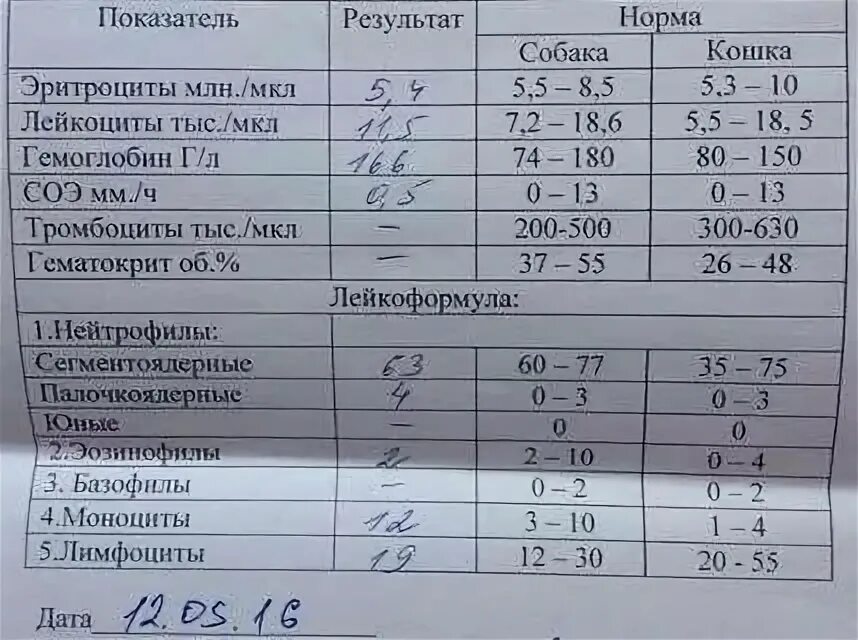 Показатель Результат Норма
Собака Кошка
Эритроциты млн./мкл 5,4 5,5 – 8,5 5.3 – 10
Лейкоциты тыс./мкл 11,5 7,2 – 18,6 5,5 – 18, 5
Гемоглобин Г/л 166 74 – 180 80 – 150
СОЭ мм./ч 0,5 0 – 13 0 – 13
Тромбоциты тыс./мкл – 200-500 300-630
Гематокрит об.% – 37 – 55 26 – 48
Лейкоформула:
1.Нейтрофилы:
Сегментоядерные 63 60 – 77 35 – 75
Палочкоядерные 4 0 – 3 0 – 3
Юные – 0 0
2.Эозинофилы 2 2 – 10 0 – 4
3. Базофилы – 0 – 2 0 – 2
4.Моноциты 12 3 – 10 1 – 4
5.Лимфоциты 19 12 – 30 20 - 55
Дата 12.05.16